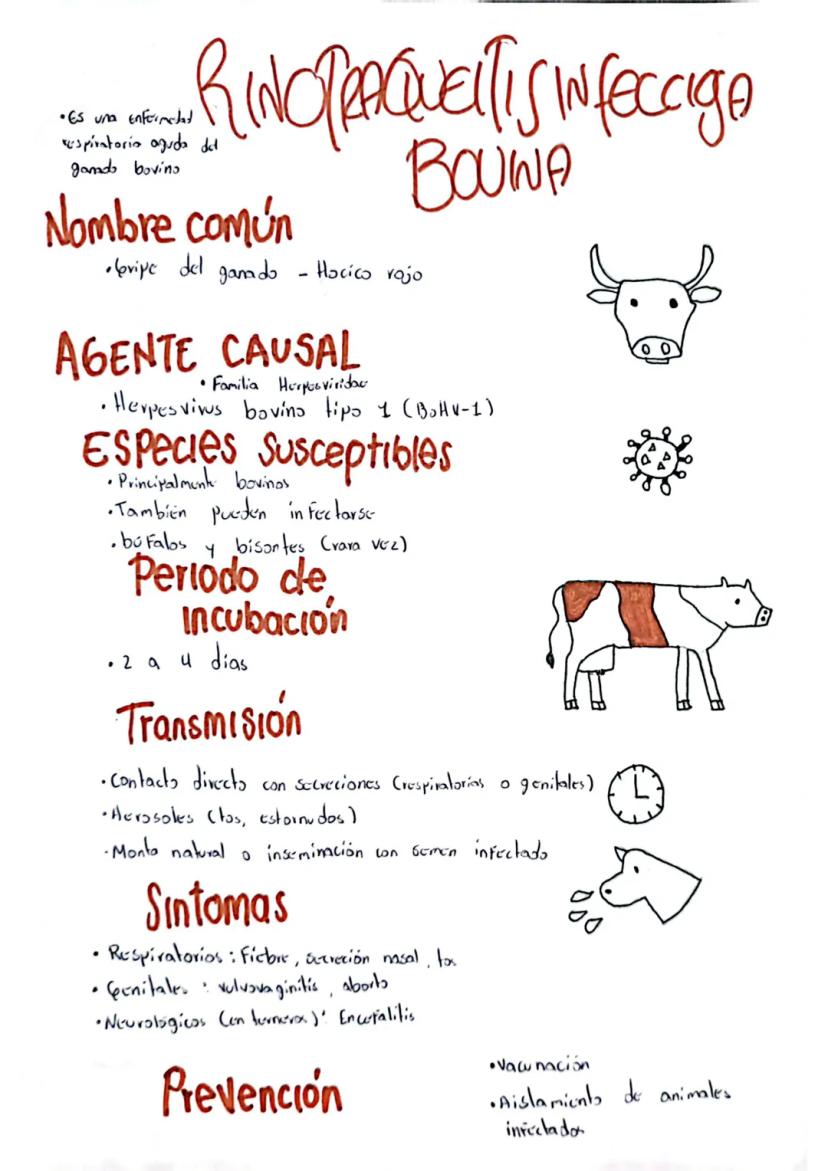 RINOTRAQUEITIS INFECCIOSA
BOVINA
•Es una enfermedad
respiratorio aguda del
ganado bovino
Nombre común
•Gripe del ganado - Hocico rojo
AGENTE CAUSAL
• Familia Herpesviridae
• Herpesvirus bovino tipo 1 (BoHV-1)
ESPecies susceptibles
• Principalmente bovinos
•También pueden infectarse
•búfalos y bisontes (rara vez)
Periodo de
incubación
•2 a 4 días
Transmisión
•Contacto directo con secreciones (respiratorias o genitales)
•Aerosoles (tos, estornudos)
•Monta natural o inseminación con semen infectado
Sintomas
• Respiratorios: Fiebre, secreción nasal, tos
• Genitales: vulvovaginitis, aborto
•Neurológicos (en terneros): Encefalitis
Prevención
•Vacunación
•Aislamiento de animales
infectados